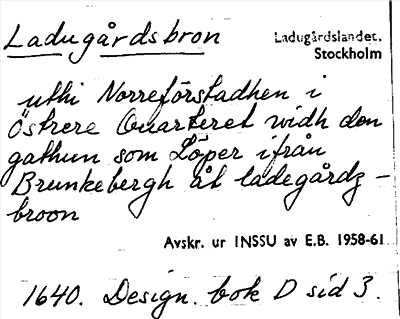 Ladugårdsbron
Ladugårdslandet,
Stockholm
uthi Norreförstadhen i
Östrere Quarteret widh den
gathun som Löper ifrån
Brunkebergh åt ladegårdz-
broon
Avskr. ur INSSU av E.B. 1958-61
1640. Design. bok D sid 3.